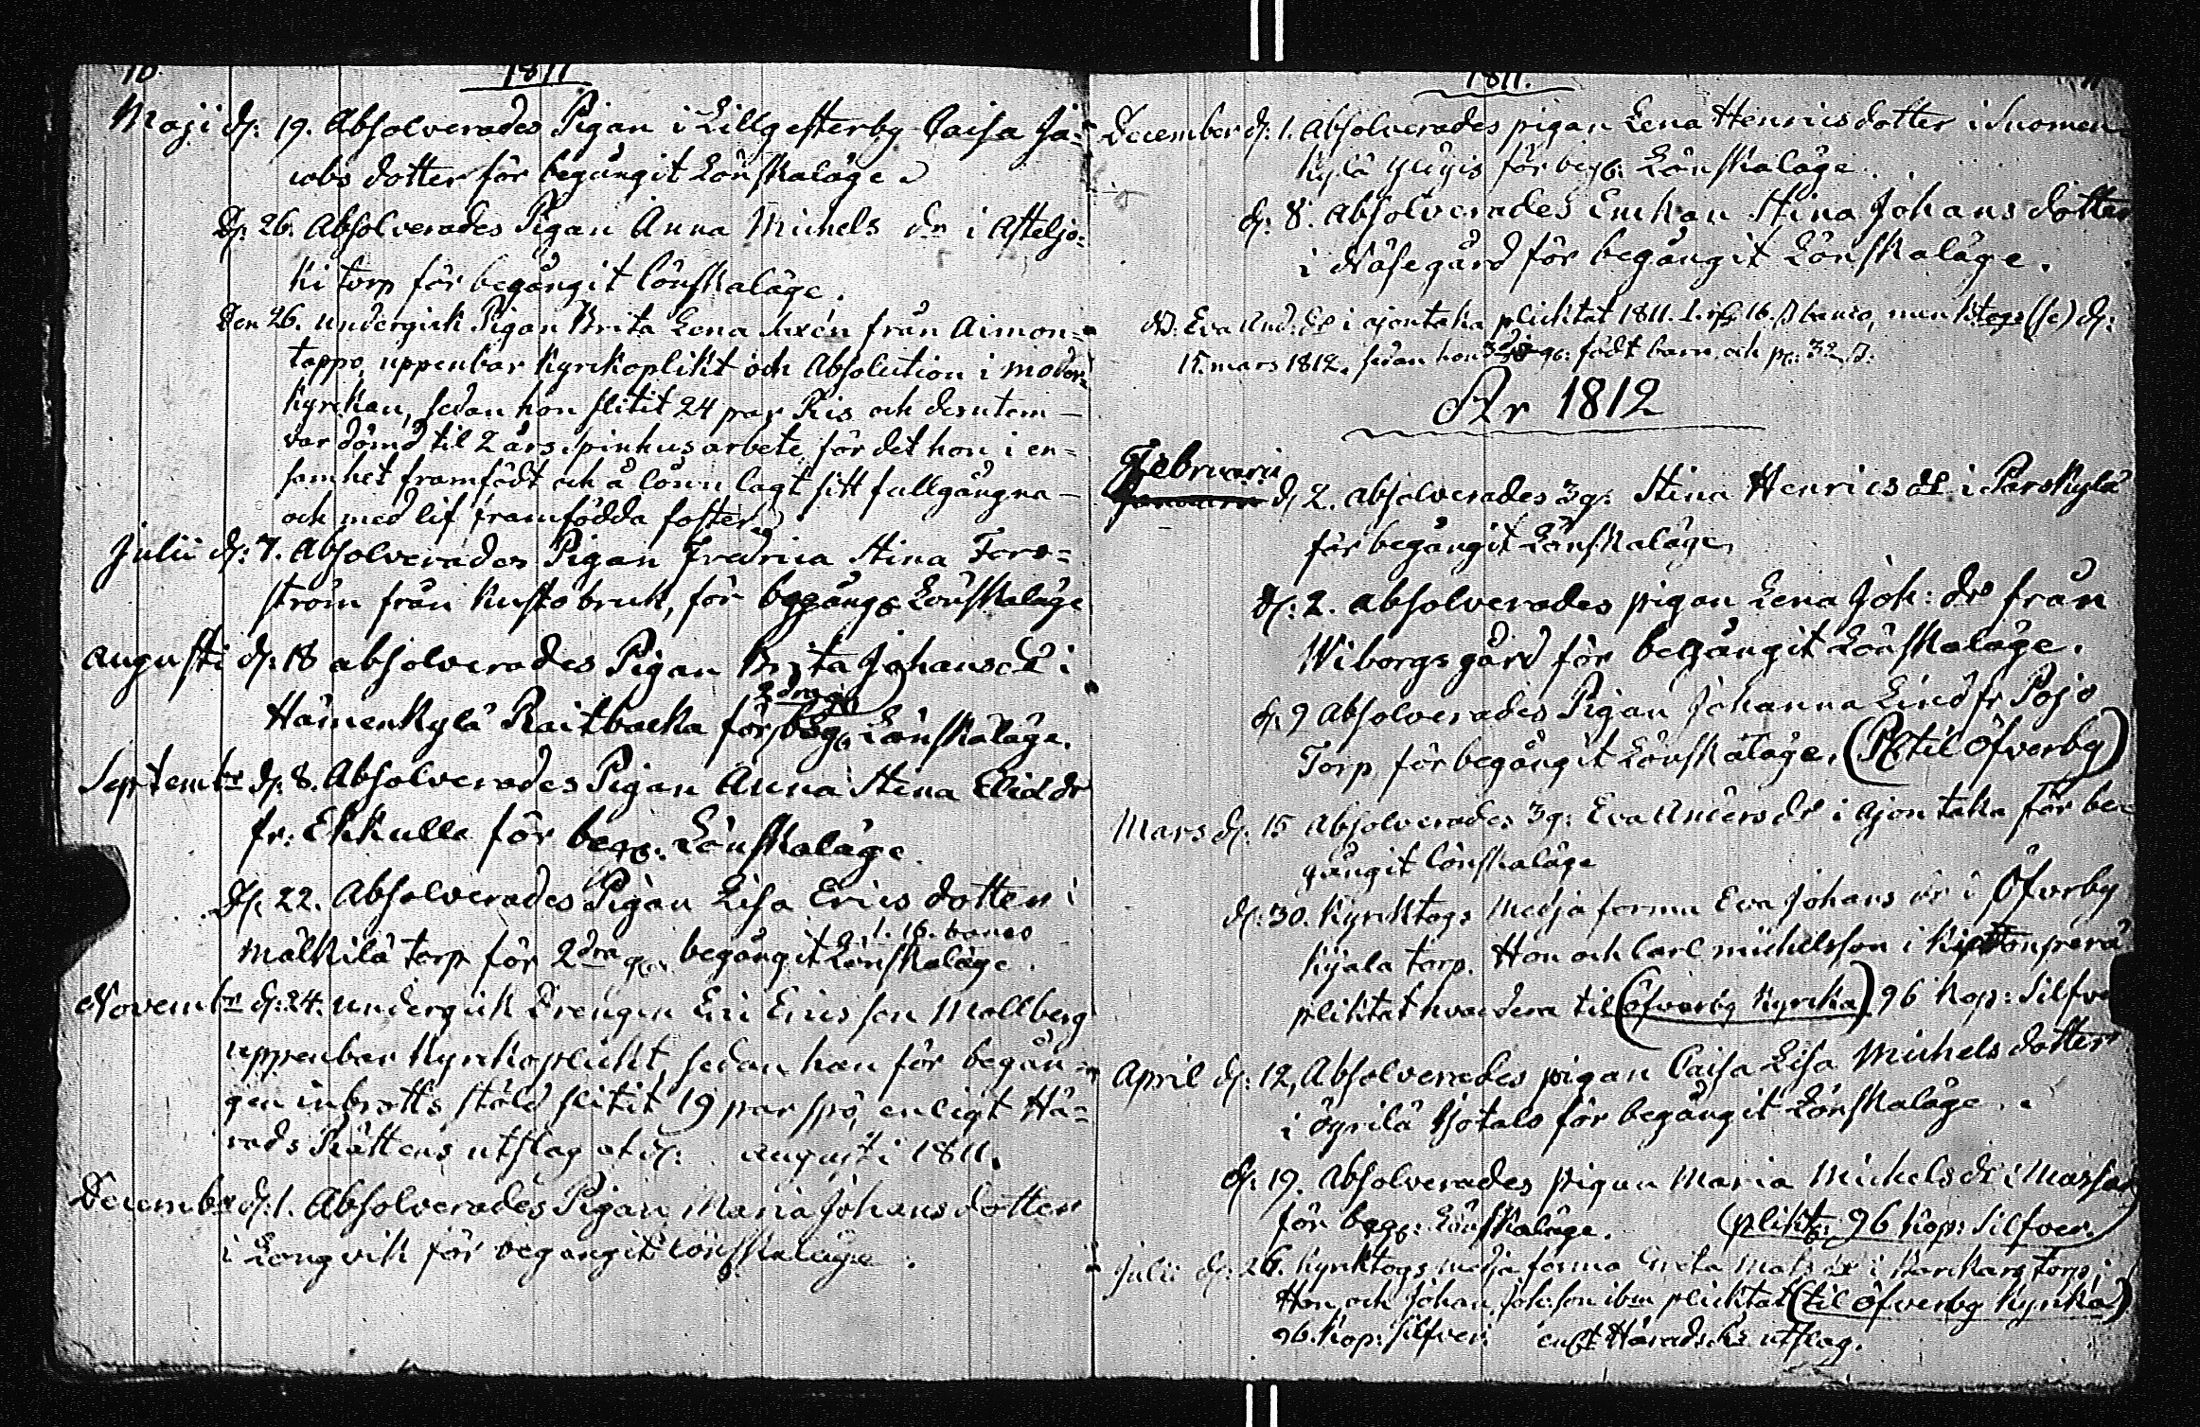 10.
1811
Maji d: 19. Absolverades Pigan i Lillgesterby Caisa Ja=
cobs dotter för begångit Lönskaläge
D: 26. Absolverades Pigan Anna Michels dr i
ki torp för begångit lönskaläge.
Den 26. undergick Pigan Brita Lena från Aimon=
tappo, uppenbar Kyrkoplikt och Absolution i moder
kyrkan, sedan hon slitit 24 par Ris och desutom
var dömd til 2 års spinhus arbete för det hon i en=
samhet framfödt och å lönn lagt sitt fullgångna
och med lif framfödda foster.
Julii d: 7. Absolverades Pigan Fredrica Stina Fors=
ström från Kusto bruk, för begång: Lönskaläge
Augusti d: 18 absolverades Pigan Brita Johansdr i
2dra g:
Hämenkylä Raitbacka för beg: Lönskaläge.
Septembr d: 8. Absolverades Pigan Anna Stina Eliædr
fr: Ekkulla för beg: Lönskaläge.
D: 22. Absolverades Pigan Lisa Erics dotter i
1. 16. banco
Mälkilä torp för 2dra g: begångit Lönskaläge.
Novembr d: 24. undergick Drengen Eric Ericsson Mallberg
uppenbar Kyrkoplickt, sedan han för begån=
gen inbrotts stöld slitit 19 par spö, enligt Hä=
rads Rättens utslag af d: augusti 1811.
Decembr d: 1. Absolverades Pigan Maria Johans dotter
i Långvik för begångit lönskaläge.
11
1811.
December d: 1. Absolverades pigan Lena Henrics dotter i Suomen=
kylä för beg: Lönskaläge.
d: 8. Absolverades Enkan Stina Johans dotter
i Näsegård för begångit Lönskaläge.
NB. Eva And: dr i ajontaka plicktat 1811. 1. rd 16. s banco, men ktogs (se) d:
15. mars 1812. sedan hon 3dje g: födt barn och p: 32 s.
År 1812
Februarii
Januarii d: 2. absolverades 3g: Stina Henricsdr i Pärskylä
för begångit Lönskaläge.
d: 2. absolverades pigan Lena Joh: dr från
Wiborgs gård för begångit Lönskaläge.
d: 9 Absolverades Pigan Johanna Lind fr Pojo
Torp för begångit Lönskaläge. (Pl til Öfverby)
Mars d: 15 Absolverades 3g: Eva Andersdr i Ajontaka för be=
gångit lönskaläge
d: 30. Kyrktogs Medja forma Eva Johans dr i Öfverby
Kijala torp. Hon och Carl Michelsson i
pliktat hvardera til (Öfverby Kyrka) 96 kop: Silfver
April d: 12, Absolverades pigan Caisa Lisa Michels dotter
i Gyrilä för begångit Lönskaläge.
d: 19. Absolverades pigan Maria Michelsdr i
för beg: Lönskaläge. (plikt: 96 kop: Silfver.)
Julii d: 26. Kyrktogs medja forma Greta Mats dr i torp,
Hon och Johan Joh:son ibm plicktat (til Öfverby kyrka)
96. kop: Silfver. enl: Härads Rs utslag.